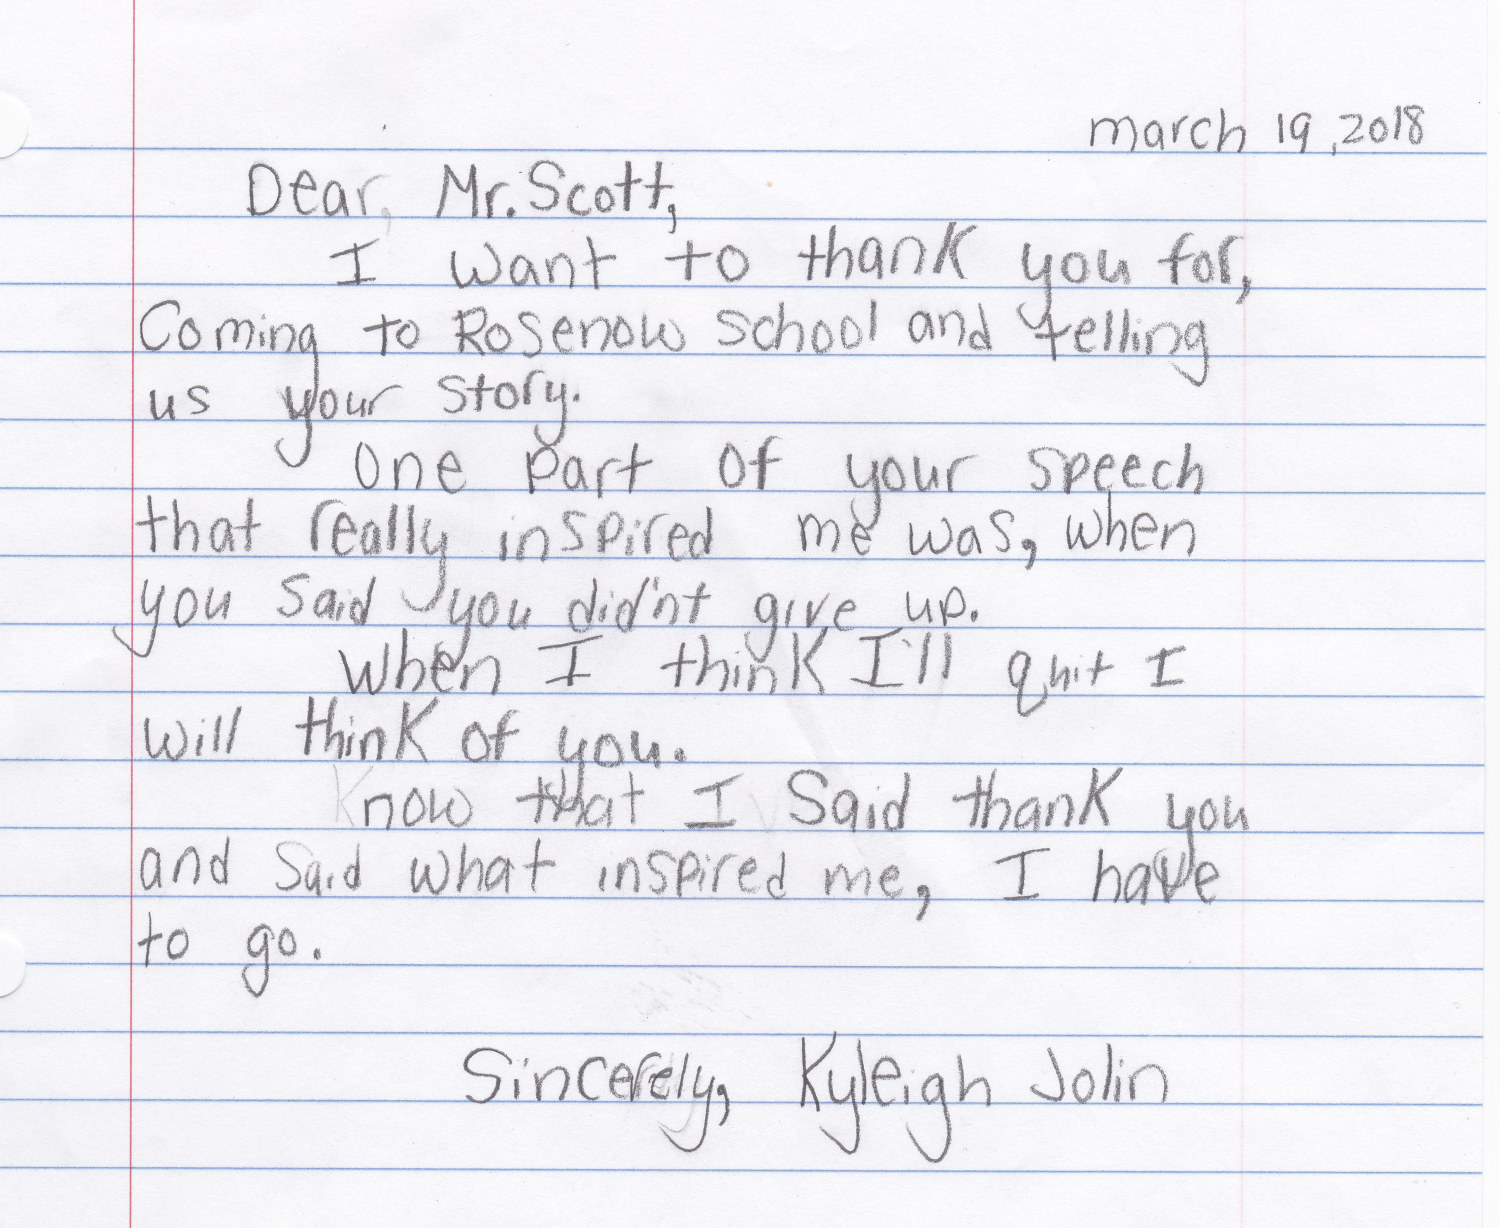 march 19, 2018
Dear, Mr. Scott,
I want to thank you for,
Coming to Rosenow School and telling
us your story.
One part of your speech
that really inspired me was, when
you said you did'nt give up.
When I think I'll quit I
will think of you.
Know that I Said thank you
and said what inspired me, I have
to go.
Sincerely, Kyleigh Jolin